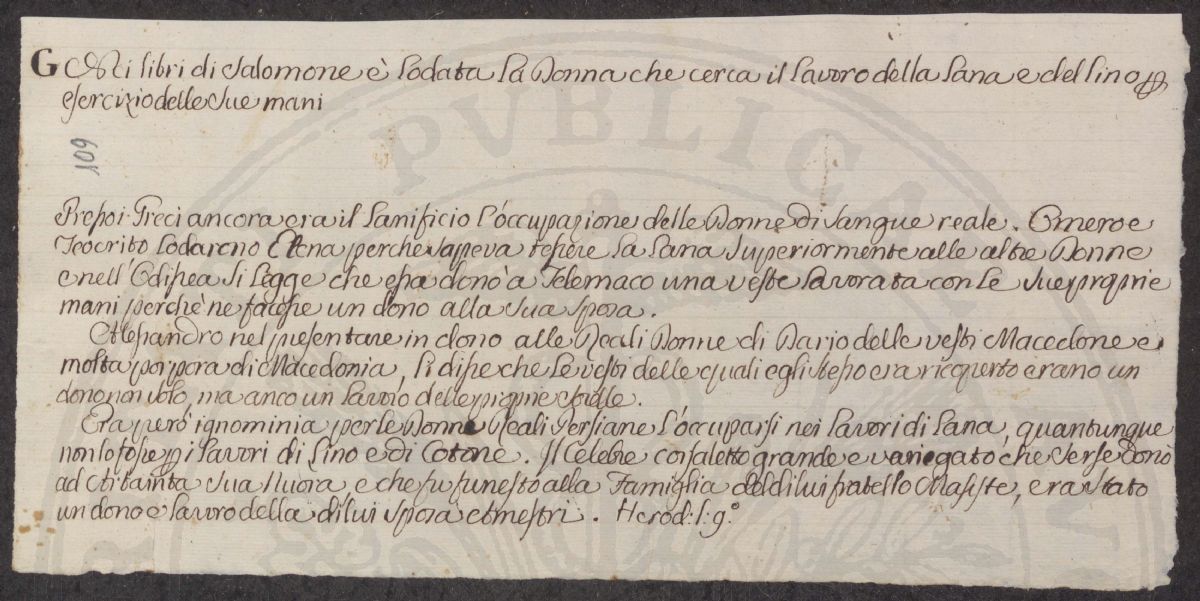 G Nei libri di Salomone è lodata la Donna che cerca il lavoro della lana e del lino p
esercizio delle sue mani
109
PVBLICA
Presso i Greci ancora era il lanificio l'occupazione delle Donne di sangue reale. Omero e
Teocrito lodarono Elena perche sapeva tessere la lana superiormente alle altre Donne
e nell'Odissea si legge che essa donò à Telemaco una veste lavorata con le sue proprie
mani perchè ne facesse un dono alla sua sposa.
Alessandro nel presentare in dono alle Reali Donne di Dario delle vesti Macedone e
molta porpora di Macedonia, li disse che le vesti delle quali egli stesso era ricoperto erano un
dono non solo, ma anco un lavoro delle proprie sorelle.
Era però ignominia per le Donne Reali Persiane l'occuparsi nei lavori di lana, quantunque
non lo fosse p i lavori di lino e di Cotone. Il Celebre corsaletto grande e variegato che Serse donò
ad Artainta sua Nuora e che fu funesto alla Famiglia del di lui fratello Masiste, era stato
un dono e lavoro della di lui sposa Amestri. Herod: l: 9.º